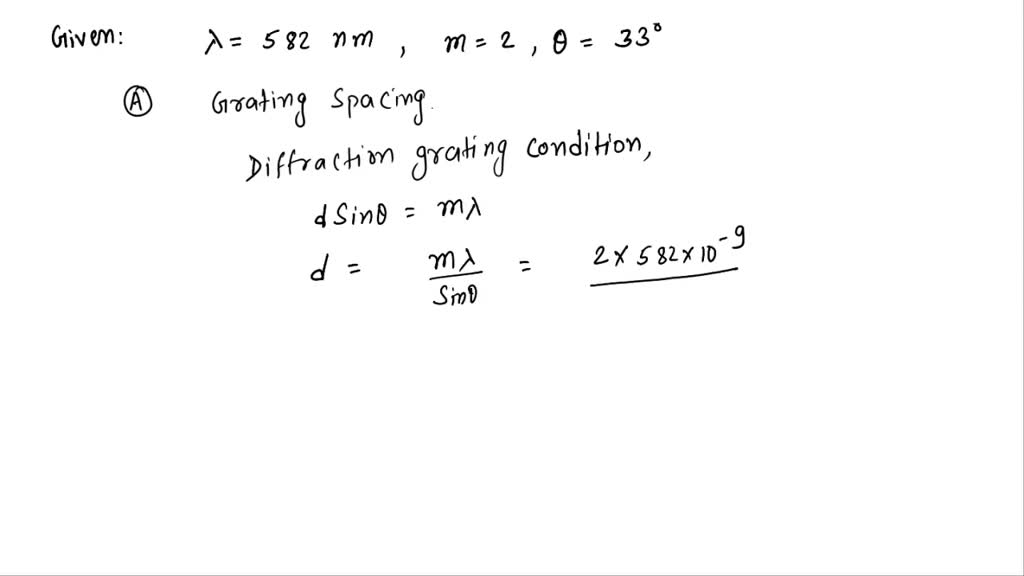 Given: λ = 582 nm , m = 2 , θ = 33°
Ⓐ Grating Spacing.
Diffraction grating condition,
d Sinθ = mλ
d = mλ / Sinθ = 2 × 582 × 10⁻⁹